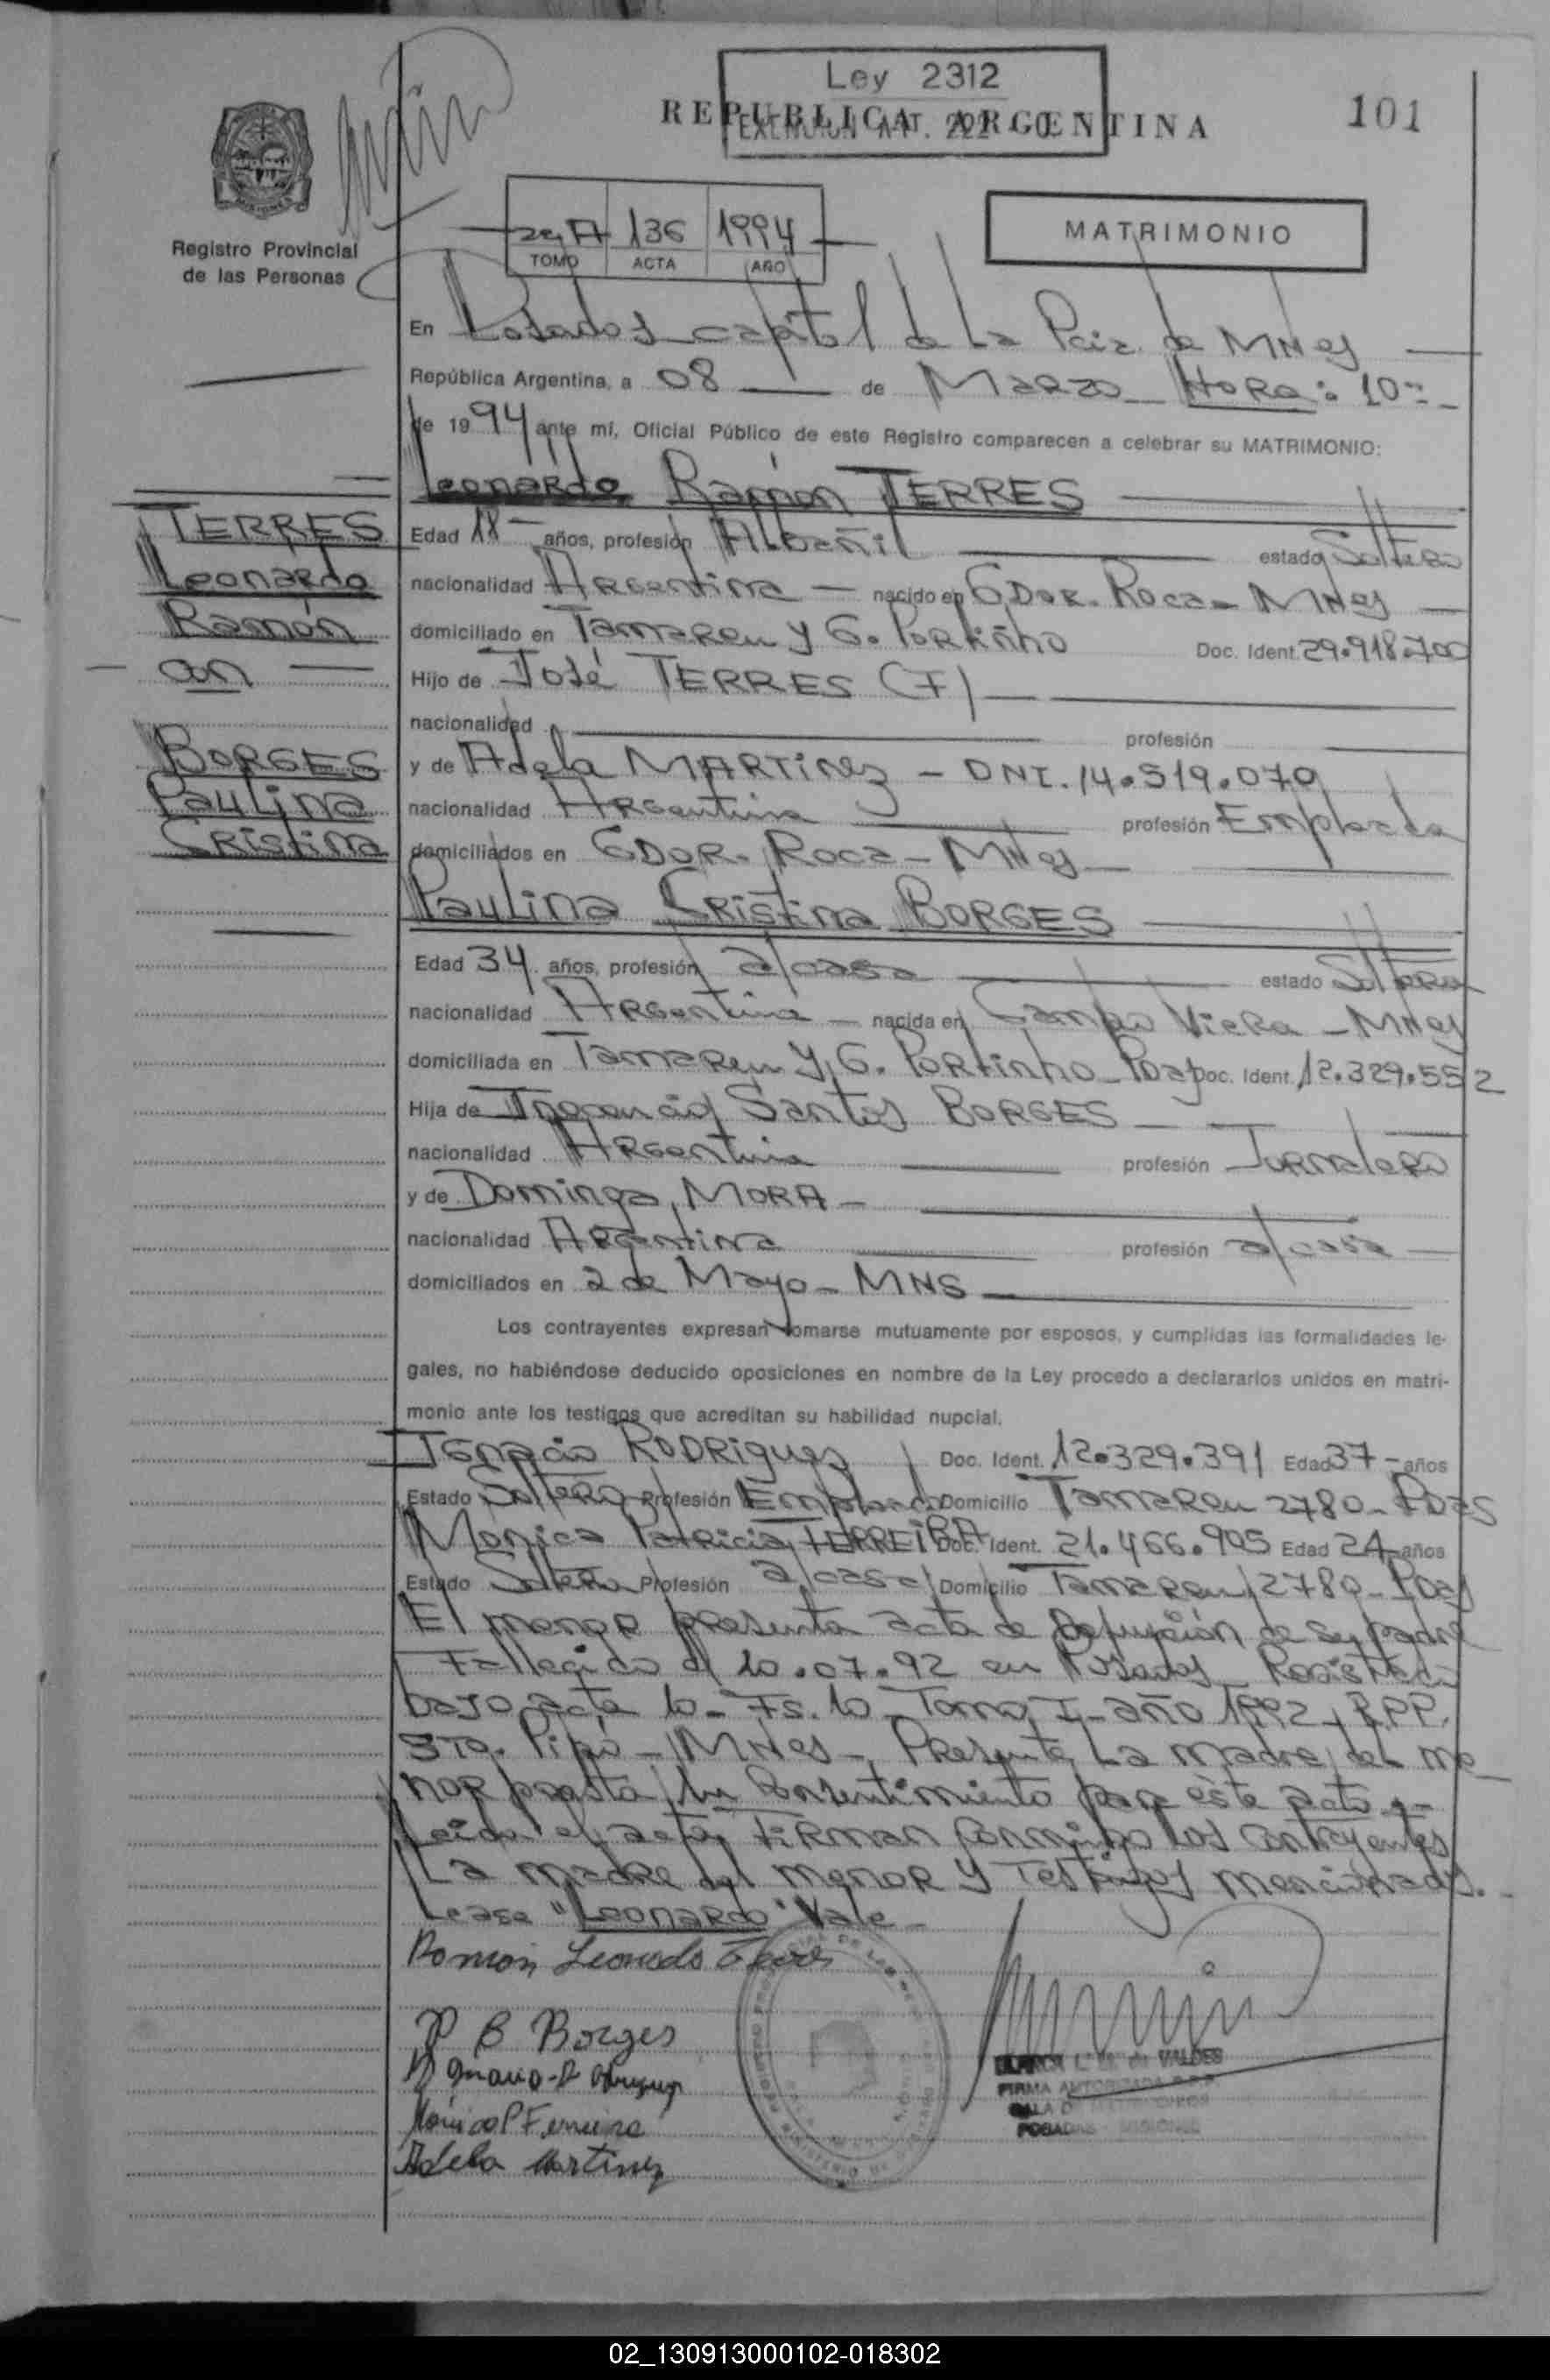 Ley 2312
REPUBLICA ARGENTINA
101
Registro Provincial
de las Personas
2da A 136 1994
TOMO ACTA AÑO
MATRIMONIO
En Posadas capital de La Pcia. de MNes
República Argentina, a 08 de Marzo HORA: 10
de 1994 ante mí, Oficial Público de este Registro comparecen a celebrar su MATRIMONIO:
Leonardo Ramón TERRES
TERRES
Leonardo
Ramón
Edad 18 años, profesión Albañil estado Soltero
nacionalidad Argentina nacido en GDOR. Roca - MNes
domiciliado en Tamareu y G. Portinho Doc. Ident. 29.918.700
Hijo de José TERRES (F)
nacionalidad profesión
y de Adela MARTINez - DNI. 14.519.070
nacionalidad Argentina profesión Empleada
domiciliados en GDOR. Roca - MNes
BORGES
Paulina
Cristina
Paulina Cristina BORGES
Edad 34 años, profesión a/casa estado Soltera
nacionalidad Argentina nacida en Campo Viera - MNes
domiciliada en Tamareu y G. Portinho - Pdas Doc. Ident. 12.329.552
Hija de Inocencio Santos BORGES
nacionalidad Argentina profesión Jornalero
y de Dominga MORA
nacionalidad Argentina profesión a/casa
domiciliados en 2 de Mayo - MNS
Los contrayentes expresan tomarse mutuamente por esposos, y cumplidas las formalidades le-
gales, no habiéndose deducido oposiciones en nombre de la Ley procedo a declararlos unidos en matri-
monio ante los testigos que acreditan su habilidad nupcial.
Ignacio RODRIGuez Doc. Ident. 12.329.391 Edad 37 años
Estado Soltero Profesión Empleado Domicilio Tamareu 2780 - PDas
Mónica Patricia FERREIRA Doc. Ident. 21.466.905 Edad 24 años
Estado Soltera Profesión a/casa Domicilio Tamareu 2780 - PDas
El menor presenta acta de Defunción de su padre
Fallecido el 10.07.92 en Posadas Registrada
bajo acta 10 - Fs. 10 - Tomo I - año 1992, R.P.P.
Sto. Pipó - MNes - Presente La madre del me
nor presta su consentimiento para éste acto -
Leida el acta, Firman conmigo los contrayentes
La madre del menor y Testigos mencionados.
Lease "Leonardo" Vale -
Ramón Leonardo Terres
P B Borges
Monica P Ferreira
Adela Martinez
FIRMA AUTORIZADA
POSADAS - MISIONES
02_130913000102-018302